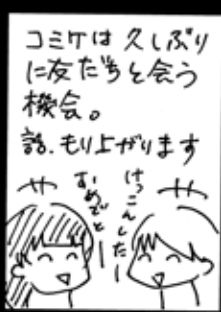 コミケは久しぶり
に友だちと会う
機会。
話、もり上がります
けっこんしたー
おめでとー